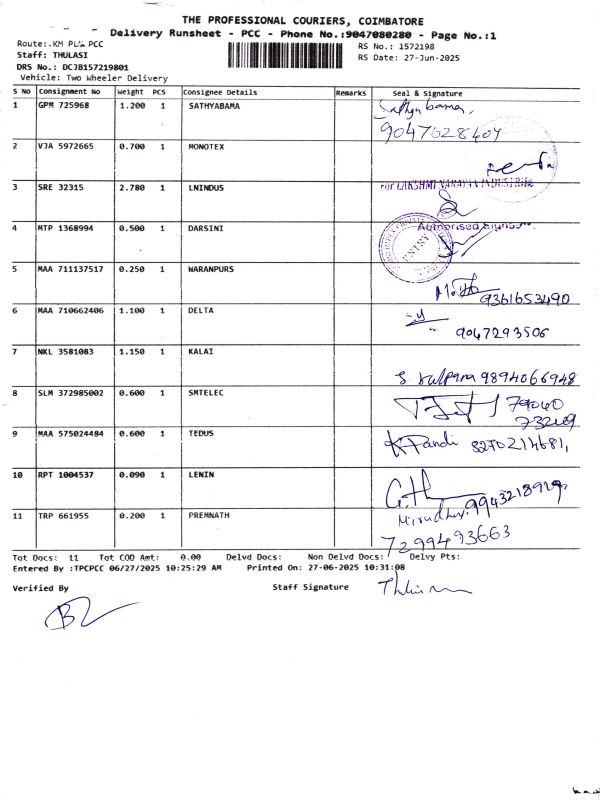 THE PROFESSIONAL COURIERS, COIMBATORE
Delivery Runsheet - PCC - Phone No.:9047080280 - Page No.:1
Route:.KM PCC
RS No.: 1572198
Staff: THULASI
RS Date: 27-Jun-2025
DRS No.: DCJB157219801
Vehicle: Two Wheeler Delivery
S No Consignment No Weight PCS Consignee Details Remarks Seal & Signature
1 GPM 725968 1.200 1 SATHYABAMA Sathya bama,
9047028404
2 VJA 5972665 0.700 1 MONOTEX
3 SRE 32315 2.780 1 LNINDUS For LAKSHMI NARAYAN INDUSTRIES
4 MTP 1368994 0.500 1 DARSINI Authorised Signatory
ENTRY
5 MAA 711137517 0.250 1 WARANPURS
9361653490
6 MAA 710662406 1.100 1 DELTA
9047293506
7 NKL 3581083 1.150 1 KALAI S kalpana 9894066948
8 SLM 372985002 0.600 1 SMTELEC
9 MAA 575024484 0.600 1 TEDUS K Pandi 8270214681,
10 RPT 1004537 0.090 1 LENIN
11 TRP 661955 0.200 1 PREMNATH
7299493663
Tot Docs: 11 Tot COD Amt: 0.00 Delvd Docs: Non Delvd Docs: Delvy Pts:
Entered By :TPCPCC 06/27/2025 10:25:29 AM Printed On: 27-06-2025 10:31:08
Verified By Staff Signature